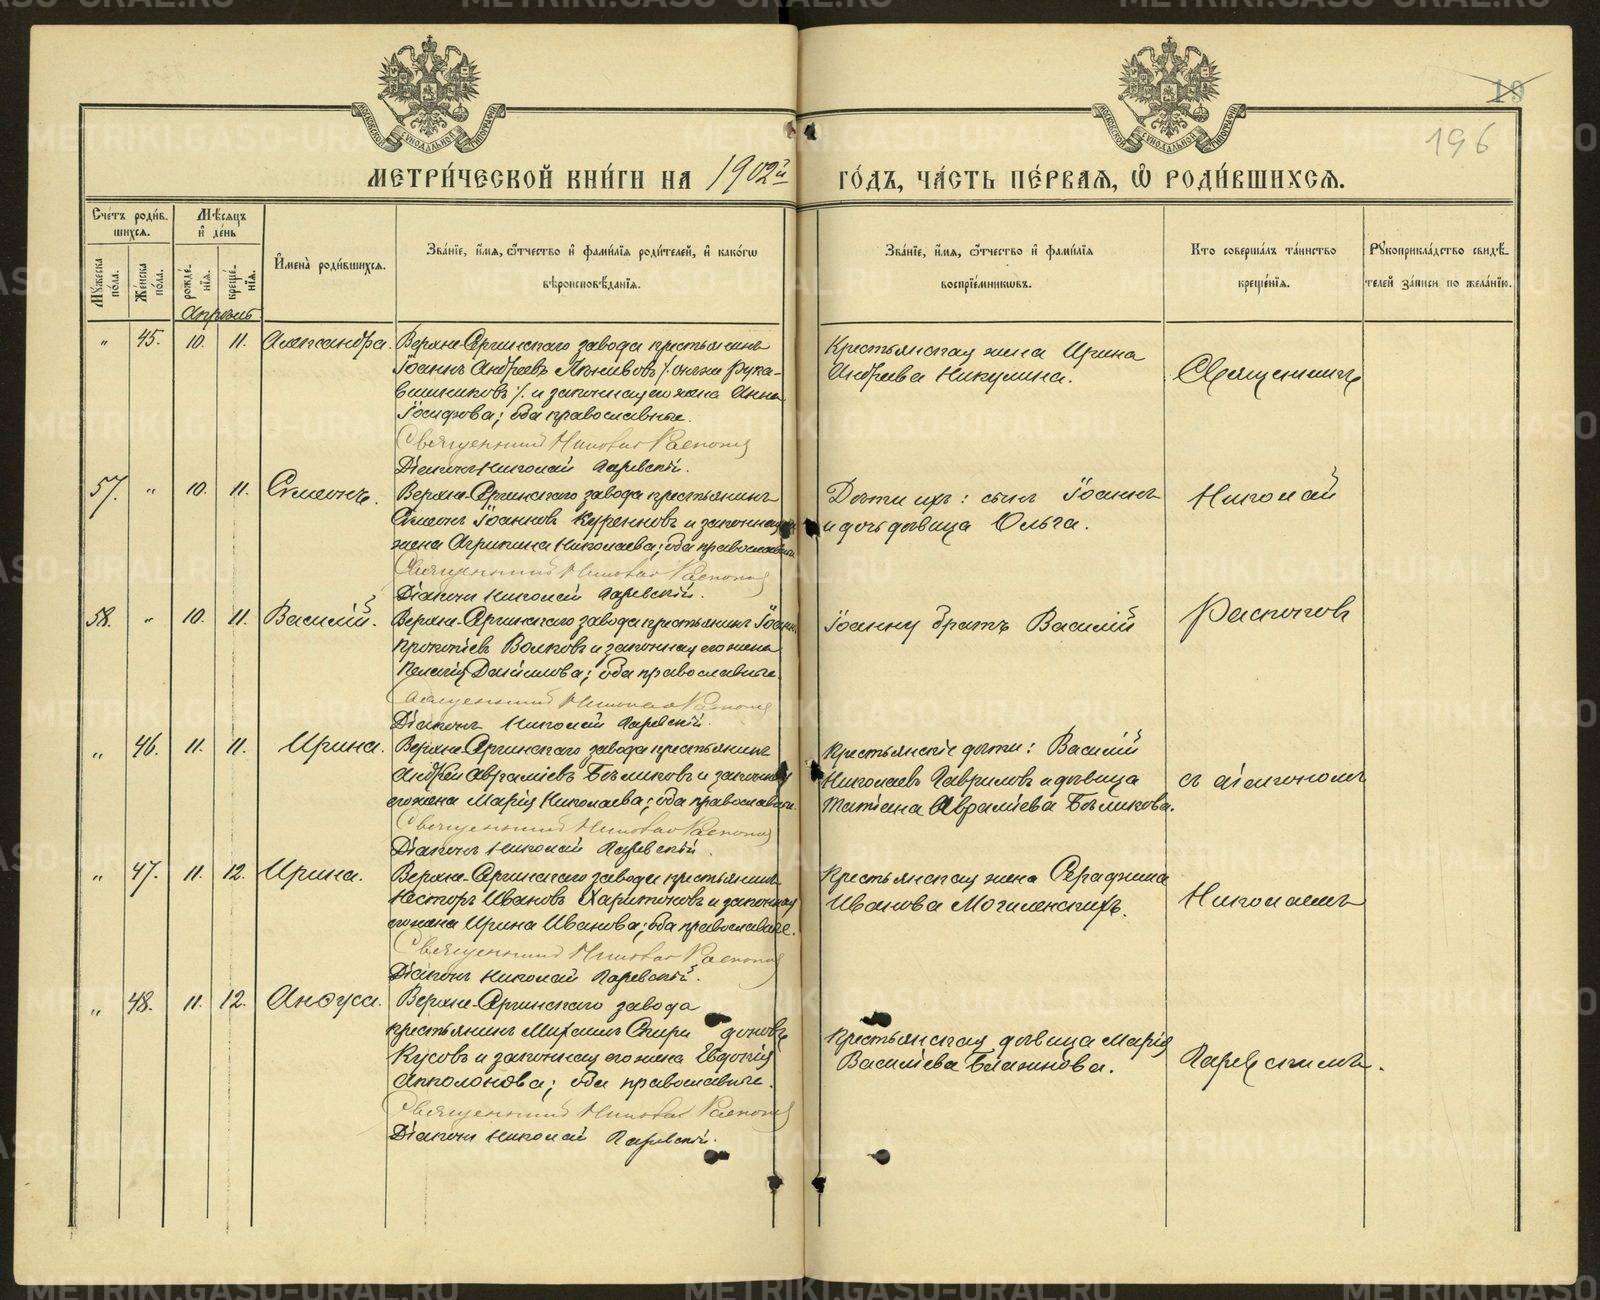 19
196
МЕТРИ́ЧЕСКОЙ КНИ́ГИ НА 1902й ГО́ДЪ, ЧА́СТЬ ПЕ́РВАЯ, Ѡ҆ РОДИ́ВШИХСЯ.
Сче́тъ роди́в­шихся.
Мꙋ́жеска по́ла.
Же́нска по́ла.
Мѣ́сяцъ и҆ де́нь
рожде́нїя.
креще́нїя.
И҆мена̀ роди́вшихся.
Зва́нїе, и҆́мя, ѻ҆́тчество и҆ фами́лїя роди́телей, и҆ како́гѡ
вѣроисповѣ́данїя.
Зва́нїе, и҆́мя, ѻ҆́тчество и҆ фами́лїя
воспрїе́мникѡвъ.
Кто̀ соверша́лъ та́инство
креще́нїя.
Рꙋкоприкла́дство свидѣ́­
телей за́писи по жела́нїю.
Апрѣль
„ 45. 10. 11. Александра.
Верхне-Сергинскаго завода крестьянинъ
Іоаннъ Андреевъ / онъ же Рука-
вишниковъ / и законная его жена Анна
Іосифова; оба православные.
Священникъ Николай Распоповъ
Діаконъ Николай Паревскій.
Крестьянская жена Ирина
Андреева Никулина.
Священникъ
57. „ 10. 11. Симеонъ.
Верхне-Сергинскаго завода крестьянинъ
Симеонъ Іоанновъ Куренновъ и законная
жена Агрипина Николаева; оба православные
Священникъ Николай Распоповъ
Діаконъ Николай Паревскій.
Дѣти ихъ: сынъ Іоаннъ
и дочь дѣвица Ольга.
Николай
58. „ 10. 11. Василій.
Верхне-Сергинскаго завода крестьянинъ Іоаннъ
Прокопіевъ Волковъ и законная его жена
Пелагія Даніилова; оба православные.
Священникъ Николай Распоповъ
Діаконъ Николай Паревскій.
Іоанну братъ Василій
Распоповъ
„ 46. 11. 11. Ирина.
Верхне-Сергинскаго завода крестьянинъ
Андрей Авраміевъ Бѣликовъ и законная
его жена Марія Николаева; оба православные.
Священникъ Николай Распоповъ
Діаконъ Николай Паревскій.
Крестьянскіе дѣти: Василій
Николаевъ Гавриловъ и дѣвица
Татіана Авраміева Бѣликова.
съ діакономъ
„ 47. 11. 12. Ирина.
Верхне-Сергинскаго завода крестьянинъ
Несторъ Ивановъ Харитоновъ и законная
его жена Ирина Иванова; оба православные.
Священникъ Николай Распоповъ
Діаконъ Николай Паревскій.
Крестьянская жена Серафима
Иванова Могиленскихъ.
Николаемъ
„ 48. 11. 12. Анфуса.
Верхне-Сергинскаго завода
крестьянинъ Михаилъ Спиридоновъ
Кусовъ и законная его жена Евдокія
Апполонова; оба православные.
Священникъ Николай Распоповъ
Діаконъ Николай Паревскій.
Крестьянская дѣвица Марія
Васильева Блинова.
Паревскимъ.
METRIKI.GASO-URAL.RU